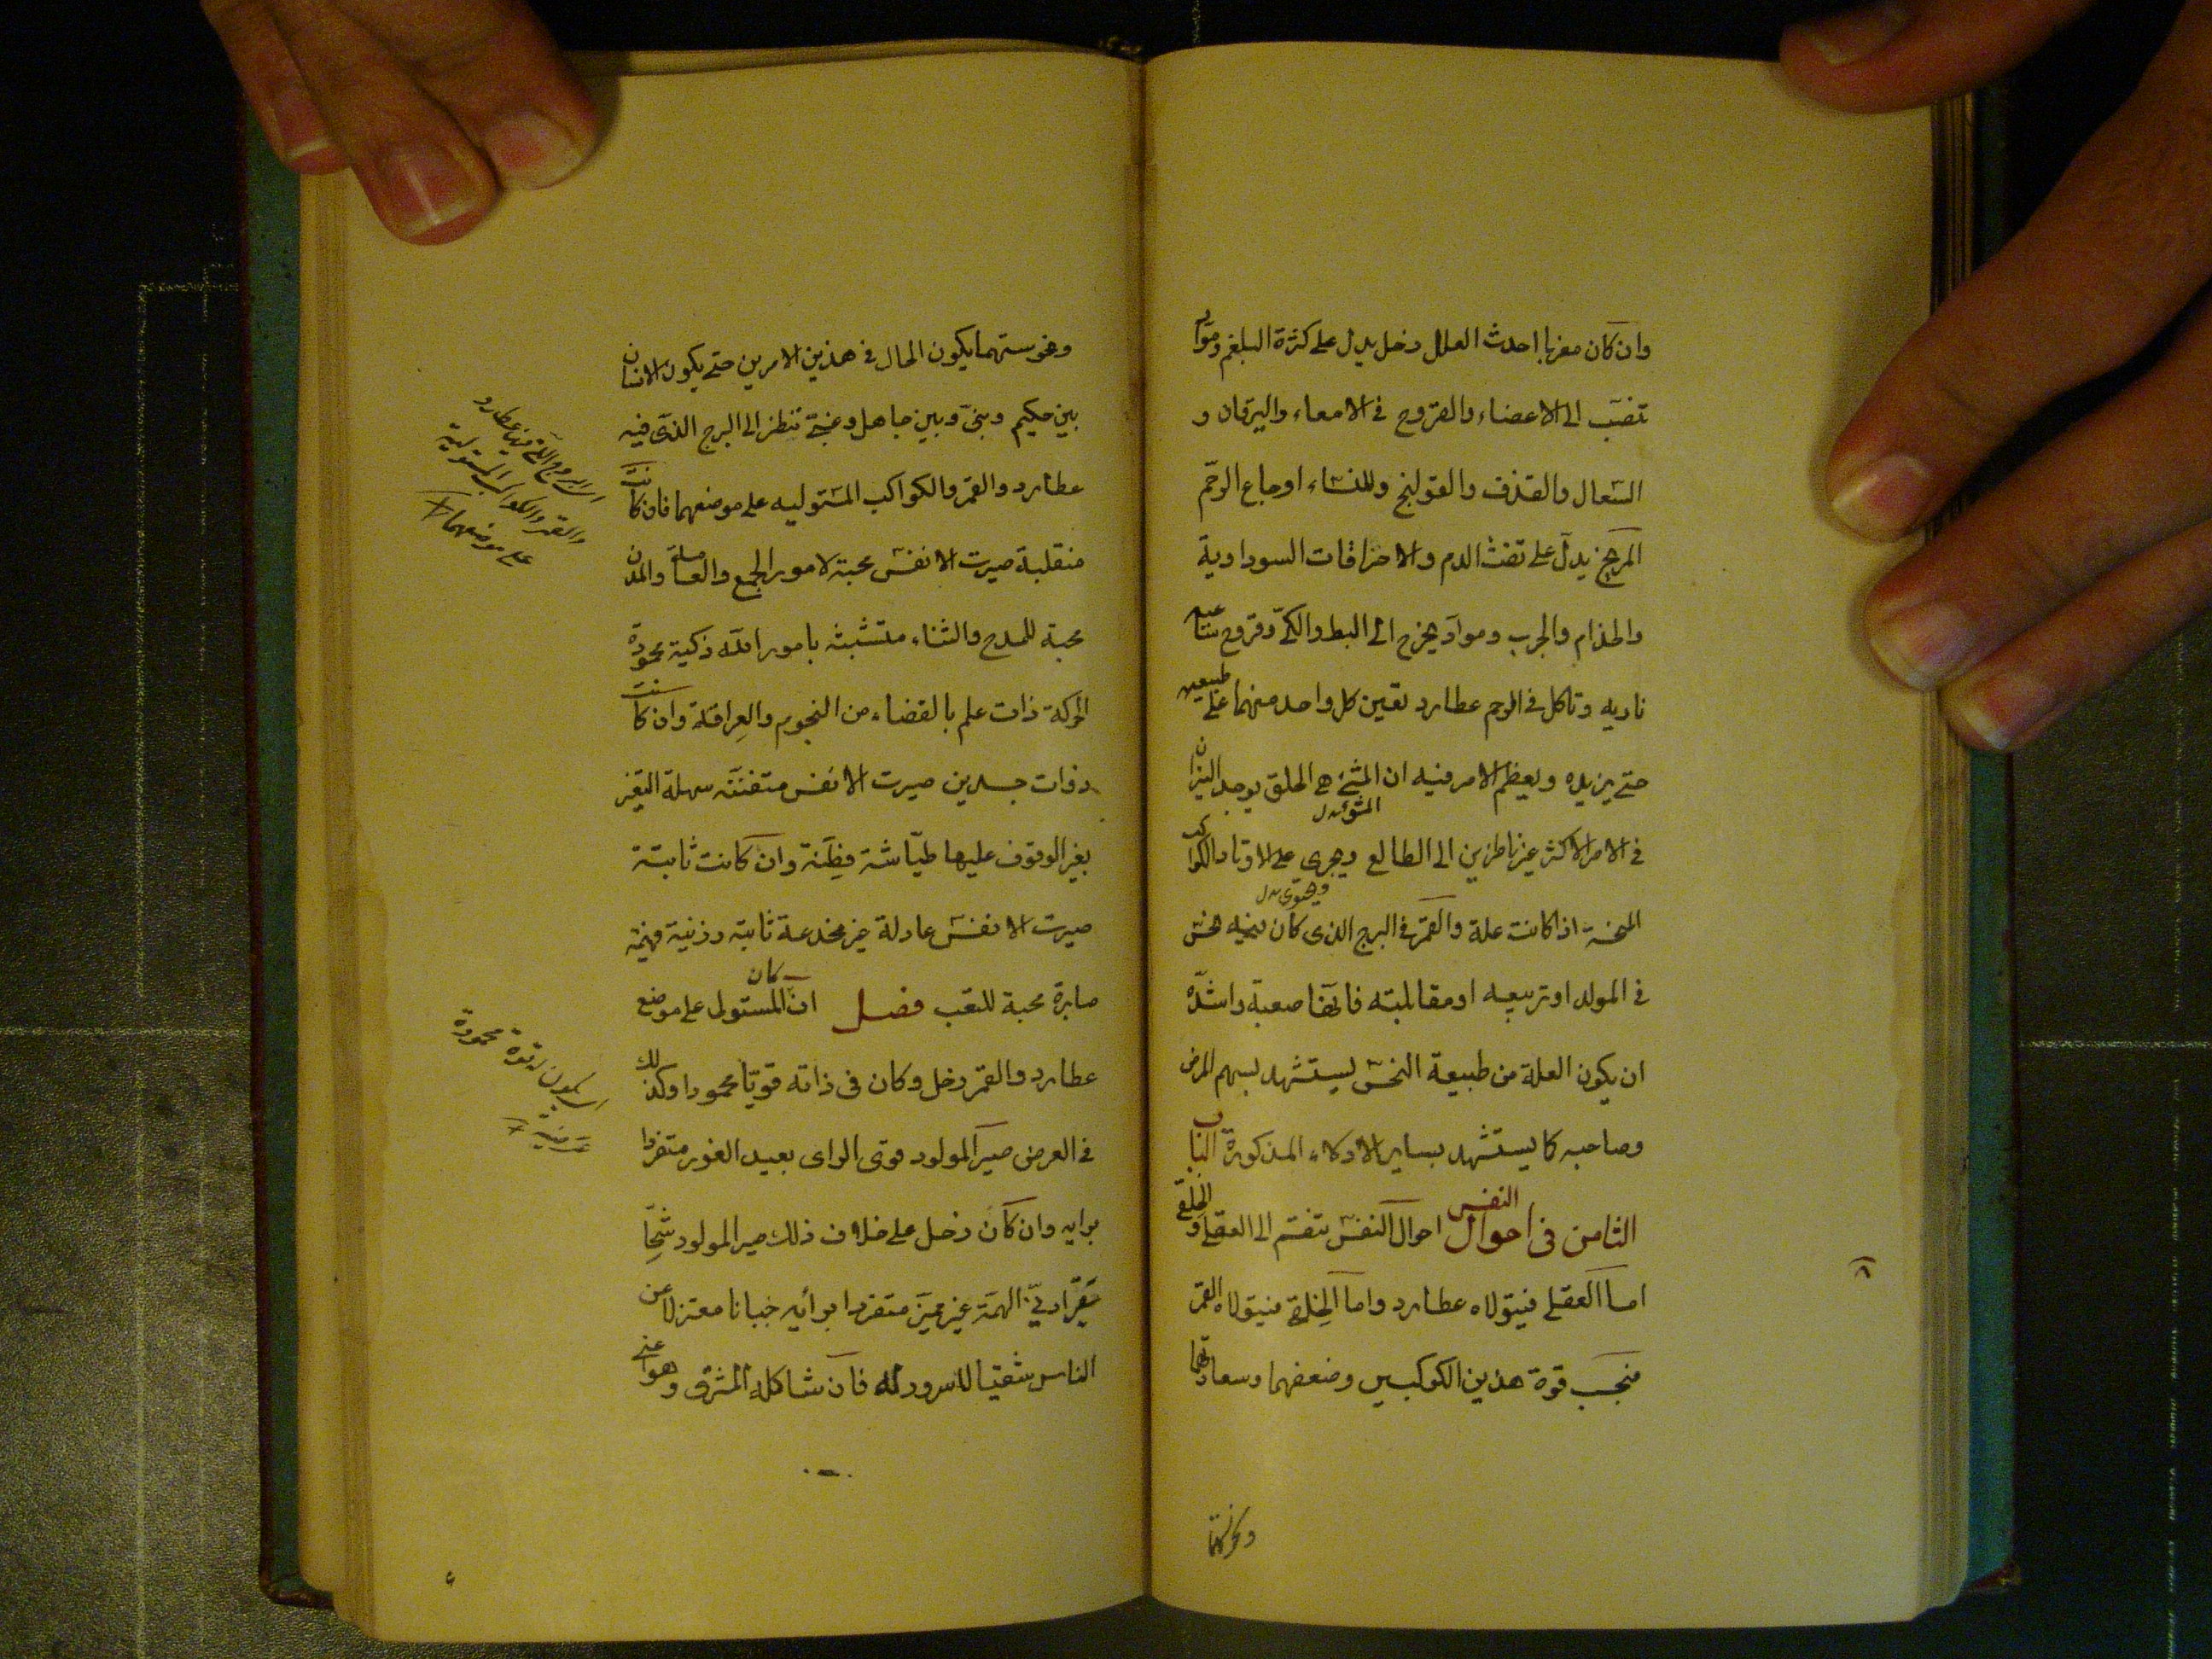 وان كان مغربا احدث العلل زحل يدل على كثرة البلغم ومواد
تنصب الى الاعضاء والقروح فى الامعاء واليرقان و
السعال والقذف والقولنج وللنساء اوجاع الرحم
المريخ يدل على نفث الدم والاحتراقات السوداوية
والجذام والجرب ومواد يخرج الى البط والكى وقروح ساعيه
ناريه وتاكل فى الرحم عطارد تعين كل واحد منهما على طبيعته
حتى يزيده ويعظم الامر فيه ان الخلق يوجد النيران
فى الامر الاكثر غير ناظرين الى الطالع ويجرى على الاوتاد الكواكب
ويحتوى
المنحسة اذا كانت علة والقمر فى البرج الذى كان فيه نحس
فى المولد او تربيعه او مقابلته فانها صعبة واشده
ان يكون العلة من طبيعة النحس ليستشهد بسهم المرض
وصاحبه كما يستشهد بساير الادلاء المذكورة الباب
الثامن فى احوال النفس احوال النفس تنقسم الى العقلى والخلقى
اما العقلى فيتولاه عطارد واما الخلقى فيتولاه القمر
فبحسب قوة هذين الكوكبين وضعفهما وسعادتهما
ونحوستهما
٨
ونحوستهما يكون الحال فى هذين الامرين حتى يكون الانسان
بين حكيم وبين جاهل وغبى تنظر الى البرج الذى فيه
عطارد والقمر والكواكب المستوليه على موضعهما فان كانت
منقلبة صيرت الانفس محبة لامور الجمع والعامة والمدن
محبة للمدح والثناء متشبثة بامور الله ذكية محمودة
الحركة ذات علم بالقضاء من النجوم والعرافة وان كانت
ذوات جسدين صيرت الانفس متفننة سهلة التغير
بغير الوقوف عليها طياشة فطنة وان كانت ثابتة
صيرت الانفس عادلة غير مخدعة ثابتة رزينة فهمة
صابرة محبة للتعب فصل ان كان المستولى على موضع
عطارد والقمر زحل وكان فى ذاته قويا محمودا وكذلك
فى العرض صير المولود قوى الراى بعيد الغور متفردا
برايه وان كان زحل على خلاف ذلك صير المولود شحيحا
دنى الهمة غير مميز متفردا برأيه جبانا معتزلا عن
الناس شقيا لاسرور له فان شاكله المشترى وهو
الى البروج التى فيها عطارد
والقمر والكواكب المستولية
على موضعهما
يكون قوة محمودة